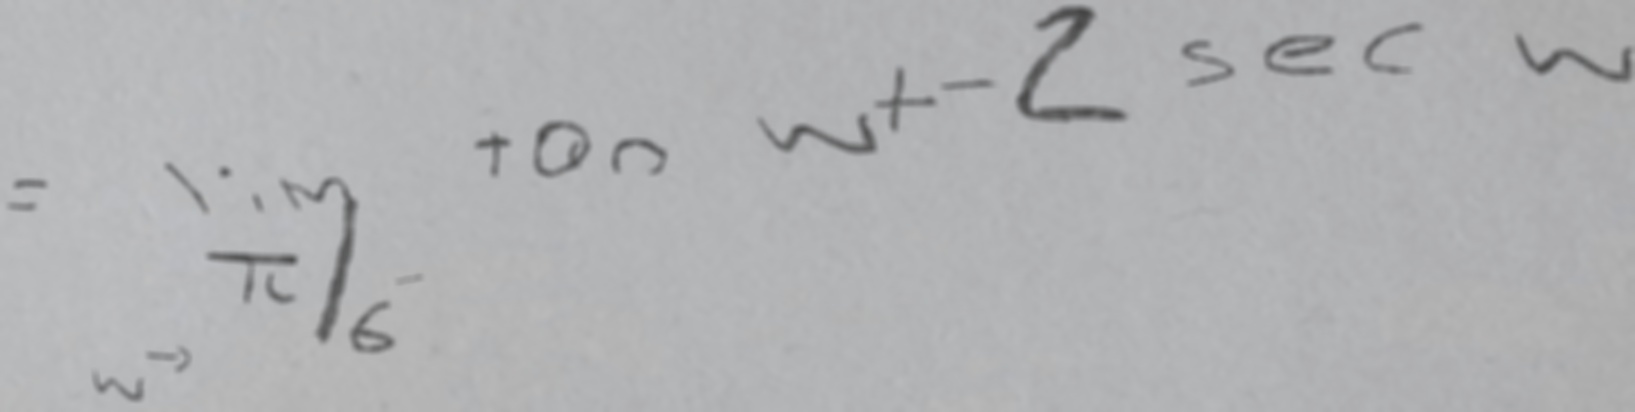 = lim w→π/6⁻ tan w + -2 sec w